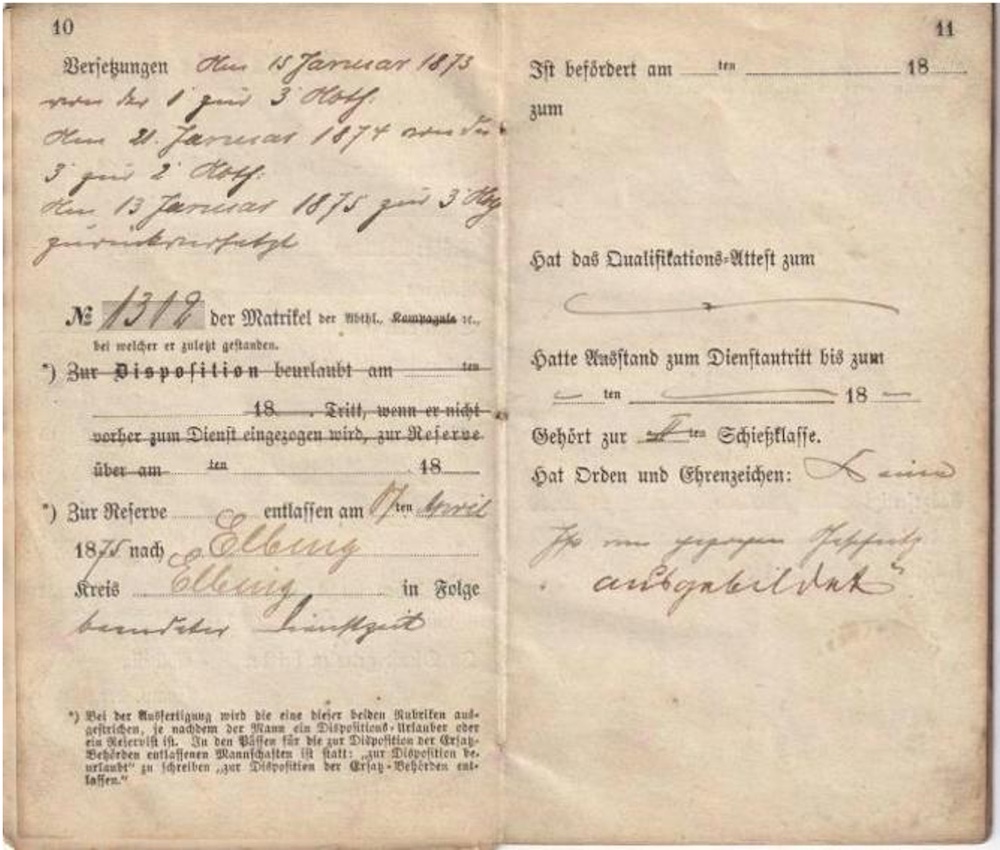 10
Versetzungen Den 15 Januar 1873
von der 1 zur 3 Abth.
Den 21. Januar 1874 von der
3 zur 2 Abth.
Den 13 Januar 1875 zur 3 Abth
zurückversetzt
№ 1312 der Matrikel der Abthl., Kompagnie ꝛc.,
bei welcher er zuletzt gestanden.
*) Zur Disposition beurlaubt am ten
18 . Tritt, wenn er nicht
vorher zum Dienst eingezogen wird, zur Reserve
über am ten 18
*) Zur Reserve entlassen am ten April
1875 nach Elbing
Kreis Elbing in Folge
beendeter Dienstzeit
*) Bei der Ausfertigung wird die eine dieser beiden Rubriken aus-
gestrichen, je nachdem der Mann ein Dispositions-Urlauber oder
ein Reservist ist. In den Pässen für die zur Disposition der Ersatz-
Behörden entlassenen Mannschaften ist statt: „zur Disposition be-
urlaubt“ zu schreiben „zur Disposition der Ersatz-Behörden ent-
lassen.“
11
Ist befördert am ten 18
zum
Hat das Qualifikations-Attest zum
Hatte Ausstand zum Dienstantritt bis zum
ten 18
Gehört zur II ten Schießklasse.
Hat Orden und Ehrenzeichen: Keine
Ist am gezogen Geschütz
ausgebildet